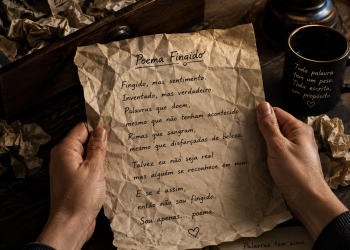 Poema Fingido
Fingido, mas sentimento
Inventado, mas verdadeiro
Palavras que doem,
mesmo que não tenham acontecido
Rimas que sangram,
mesmo que disfarçadas de beleza.
Talvez eu não seja real
mas alguém se reconhece em mim
E se é assim,
então não sou fingido.
Sou apenas... poema.
Toda palavra
tem um peso.
Toda escrita,
um propósito.
Palavras tem alma